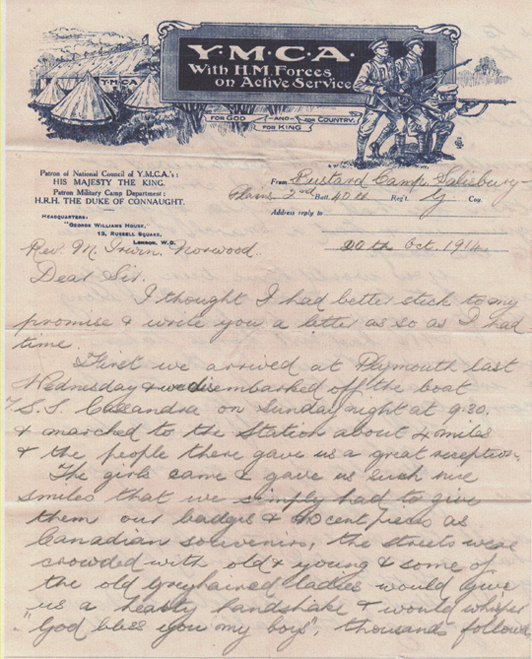 Y·M·C·A·
With H.M. Forces
on Active Service
Y·M·C·A
FOR GOD —AND— FOR COUNTRY.
FOR KING
Patron of National Council of Y.M.C.A.'s:
HIS MAJESTY THE KING.
Patron Military Camp Department:
H.R.H. THE DUKE OF CONNAUGHT.
HEADQUARTERS:
"GEORGE WILLIAMS HOUSE,"
13, RUSSELL SQUARE,
LONDON, W.C.
From Bustard Camp, Salisbury
Plains 2nd Batt. 40th Reg't. G Coy.
Address reply to
20th Oct. 1914
Rev. M. Irwin, Norwood.
Dear Sir.
I thought I had better stick to my
promise & write you a letter as so as I had
time.
First we arrived at Plymouth last
Wednesday & we disembarked off the boat
T.S.S. Cassandra on Sunday night at 9.30.
& marched to the Station about 4 miles
& the people there gave us a great reception.
The girls came & gave us such nice
smiles that we simply had to give
them our badges & cent pieces as
Canadian souvenirs, the streets were
crowded with old & young & some of
the old greyhaired ladies would give
us a hearty handshake & would whisper
"God bless you my boys", thousands follow